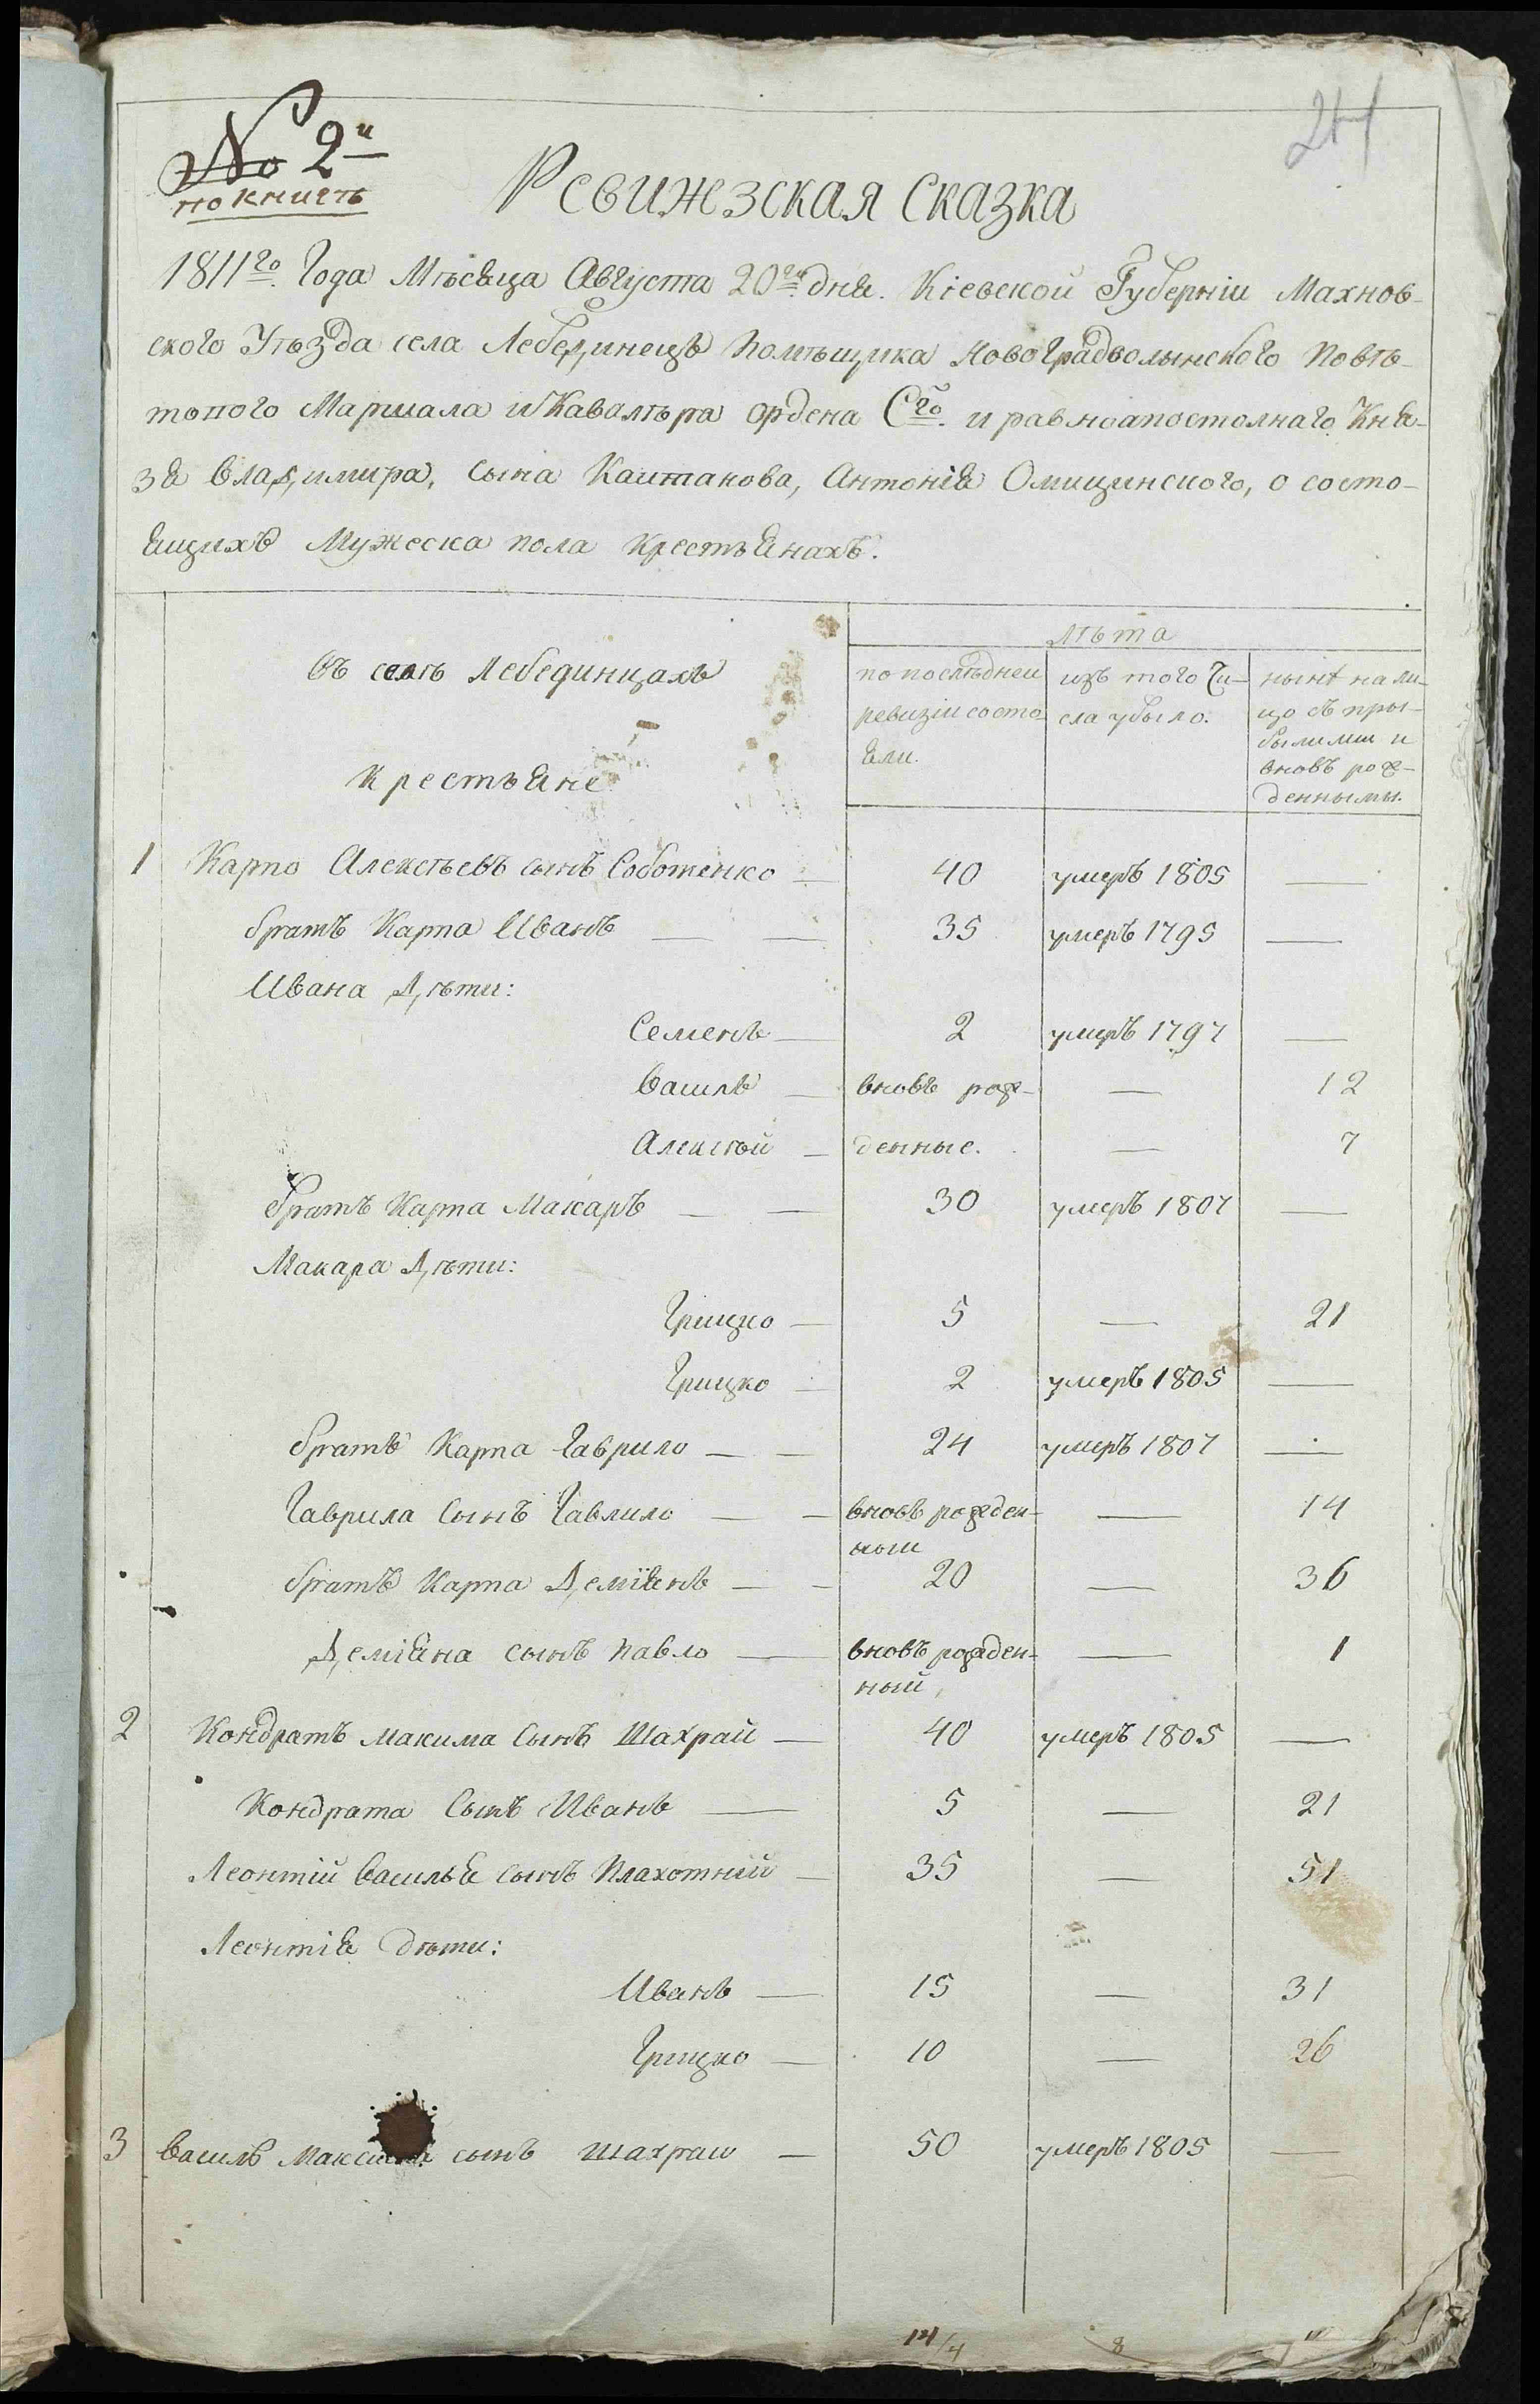 24
№ 2й
по книгѣ
Ревижзская Сказка
1811го Года Мѣсяца Августа 20го дня. Кіевской Губерніи Махнов-
ского Уѣзда села Лебединецъ Помѣщика Новоградволынского Повѣ-
тового Маршала и Кавалѣра ордена Сго и равноапостолнаго Кня-
зя Владимира, сына Каитанова, Антонія Омицинского, о состо-
ящихъ Мужеска пола Крестьянахъ.
Лѣта
Въ селѣ Лебединцахъ
Крестьяне
по послѣдней ревизіи состо яли.
изъ того Чи- сла убыло.
нынѣ на ли- цо съ при- былими и вновь рож- денными.
1 Карпо Алексѣевъ сынъ Соботенко — 40 умеръ 1805 —
братъ Карпа Иванъ — — 35 умеръ 1795 —
Ивана Дѣти:
Семенъ — 2 умеръ 1797 —
Василь — вновь рож- — 12
Алексѣй — денные. — 7
братъ Карпа Макаръ — — 30 умеръ 1807 —
Макара Дѣти:
Грицко — 5 — 21
Грицко — 2 умеръ 1805 —
братъ Карпа Гаврило — — 24 умеръ 1807 —
Гаврила Сынъ Гаврило — — вновь рожден- — 14
ныи
братъ Карпа Деміянъ — — 20 — 36
Деміяна сынъ Павло — вновь рожден- — 1
ный
2 Кондратъ Макима Сынъ Шахрай — 40 умеръ 1805 —
Кондрата Сынъ Иванъ — 5 — 21
Леонтій Василья сынъ Плахотній — 35 — 51
Леонтія дѣти:
Иванъ — 15 — 31
Грицко — 10 — 26
3 Василь Максима сынъ Шахрай — 50 умеръ 1805 —
14/4 8